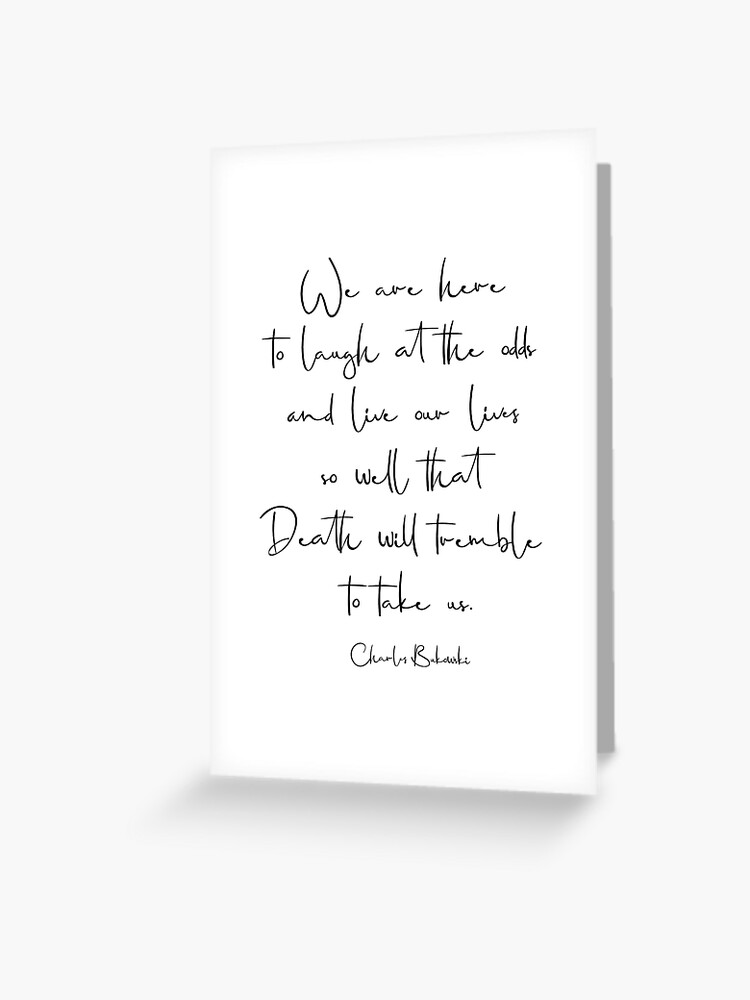 We are here
to laugh at the odds
and live our lives
so well that
Death will tremble
to take us.
Charles Bukowski